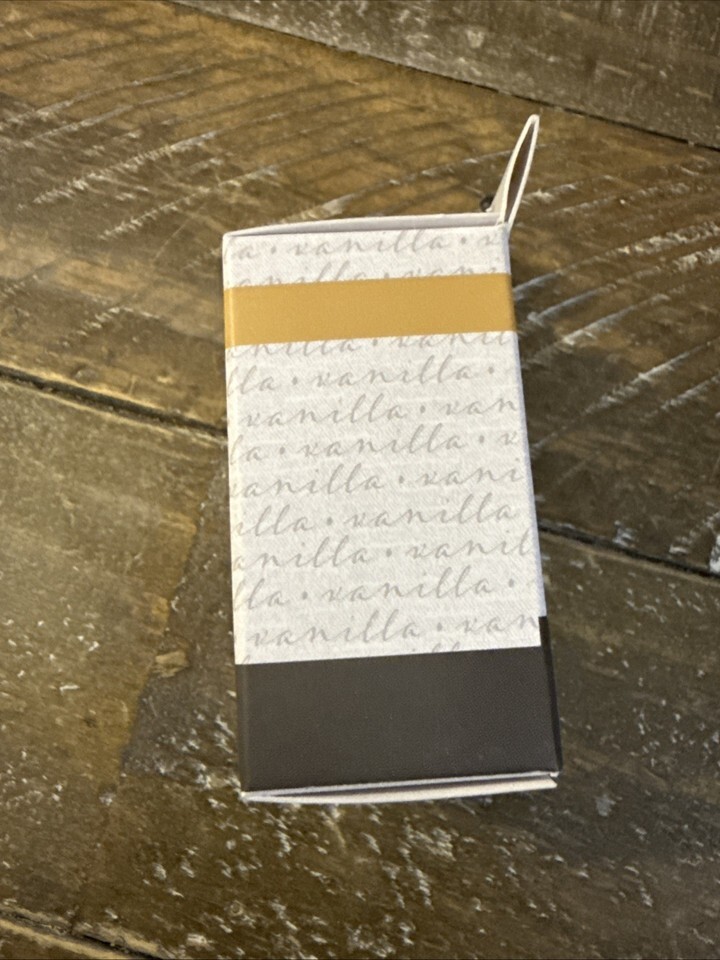 a • vanilla • v
anilla • vani
anilla • vanil
lla • vanilla •
vanilla • van
la • vanilla • v
vanilla • vani
illa • vanilla
anilla • vanil
lla • vanilla •
vanilla • van